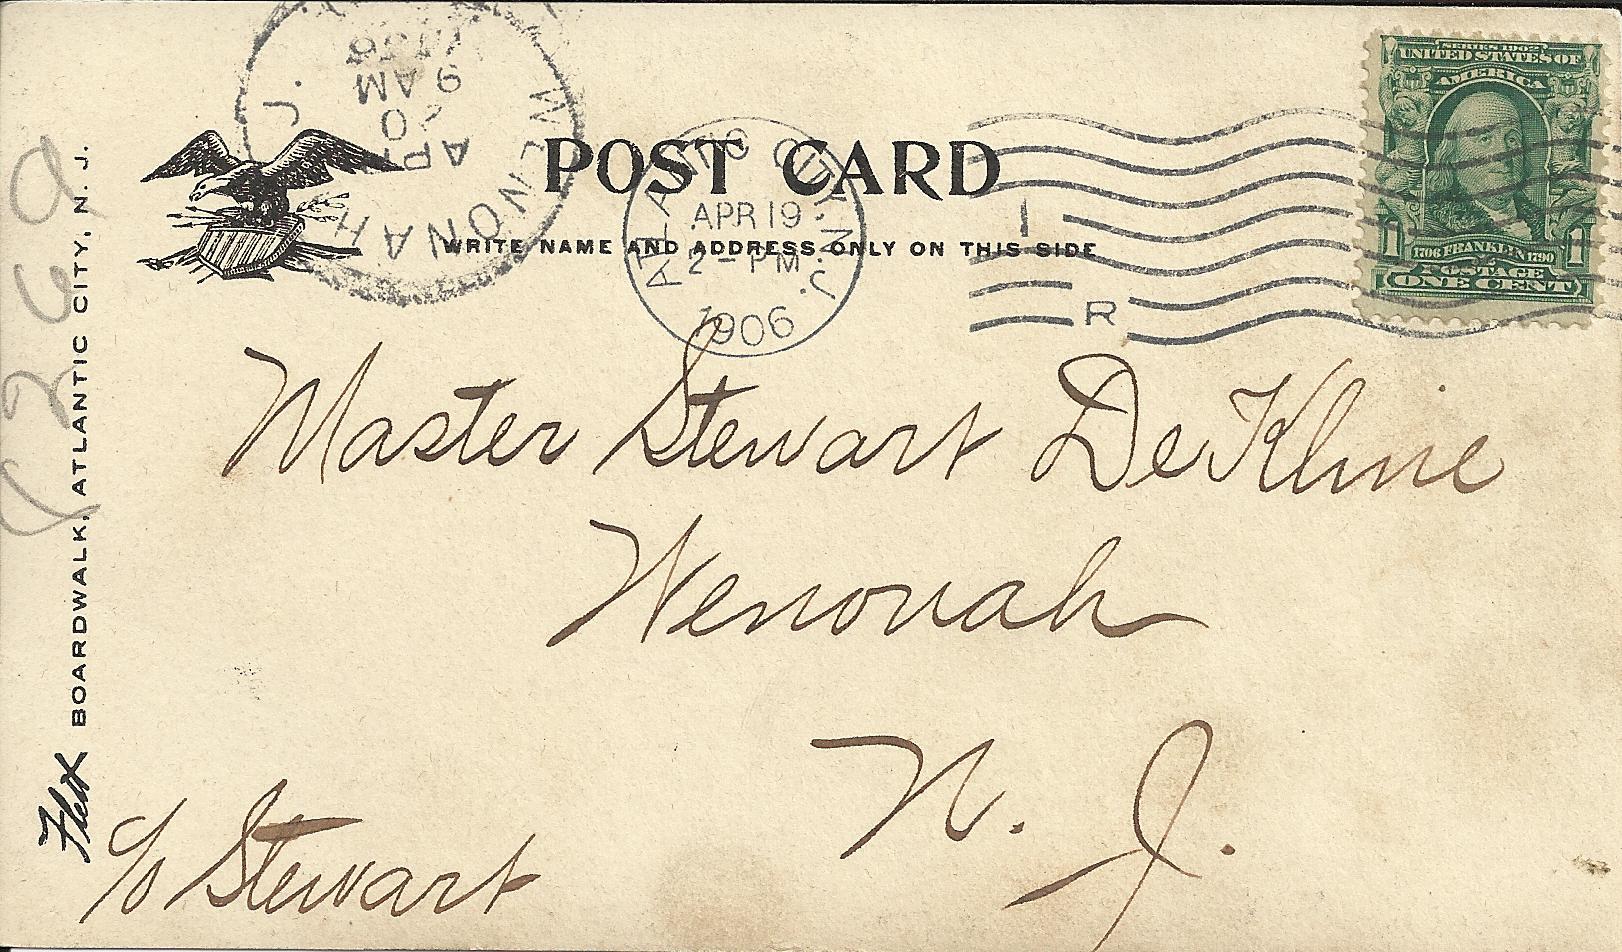 WENONAH
N. J.
APR
20
9 AM
1906
POST CARD
WRITE NAME AND ADDRESS ONLY ON THIS SIDE
ATLANTIC CITY, N. J.
APR 19
2 - PM
1906
I
R
SERIES 1902
UNITED STATES OF
AMERICA
1706 FRANKLIN 1790
1 1
POSTAGE
ONE CENT
Master Stewart DeKline
Wenonah
N. J.
c/o Stewart
BOARDWALK, ATLANTIC CITY, N. J.